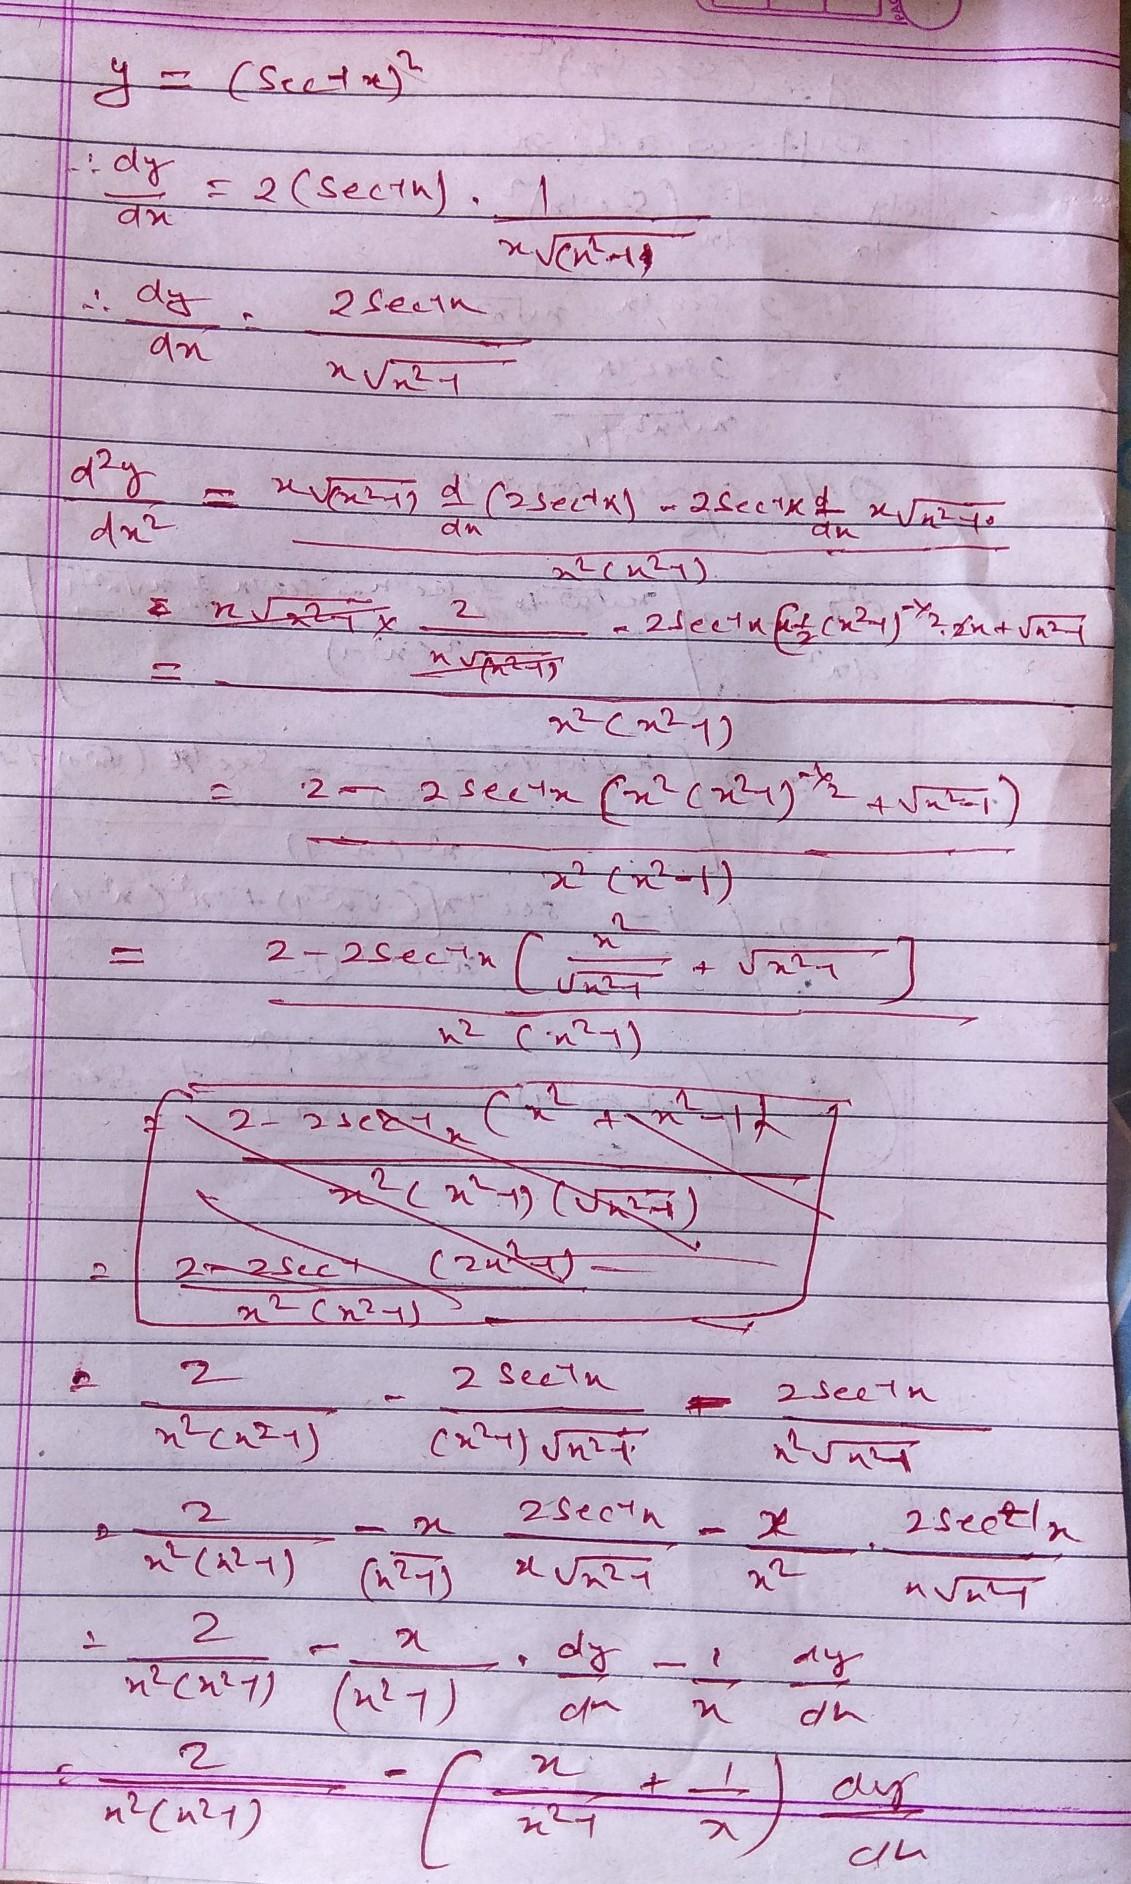 y = (sec⁻¹x)²
∴ dy/dx = 2(sec⁻¹x) . 1/(x√(x²-1))
∴ dy/dx = 2sec⁻¹x/(x√x²-1)
d²y/dx² = (x√(x²-1) d/dx (2sec⁻¹x) - 2sec⁻¹x d/dx x√x²-1)/(x²(x²-1))
= (x√x²-1 × 2/(x√(x²-1)) - 2sec⁻¹x (x 1/2 (x²-1)^(-1/2) . 2x + √x²-1)/(x²(x²-1))
= (2 - 2sec⁻¹x (x²(x²-1)^(-1/2) + √x²-1))/(x²(x²-1))
= (2 - 2sec⁻¹x [x²/√x²-1 + √x²-1])/(x²(x²-1))
= (2 - 2sec⁻¹x (x² + x²-1))/(x²(x²-1)(√x²-1))
= (2 - 2sec⁻¹ (2x²-1))/(x²(x²-1))
= 2/(x²(x²-1)) - 2sec⁻¹x/((x²-1)√x²-1) - 2sec⁻¹x/(x²√x²-1)
= 2/(x²(x²-1)) - x/(x²-1) 2sec⁻¹x/(x√x²-1) - x/x² . 2sec⁻¹x/(x√x²-1)
= 2/(x²(x²-1)) - x/(x²-1) . dy/dx - 1/x dy/dx
= 2/(x²(x²-1)) - (x/(x²-1) + 1/x) dy/dx